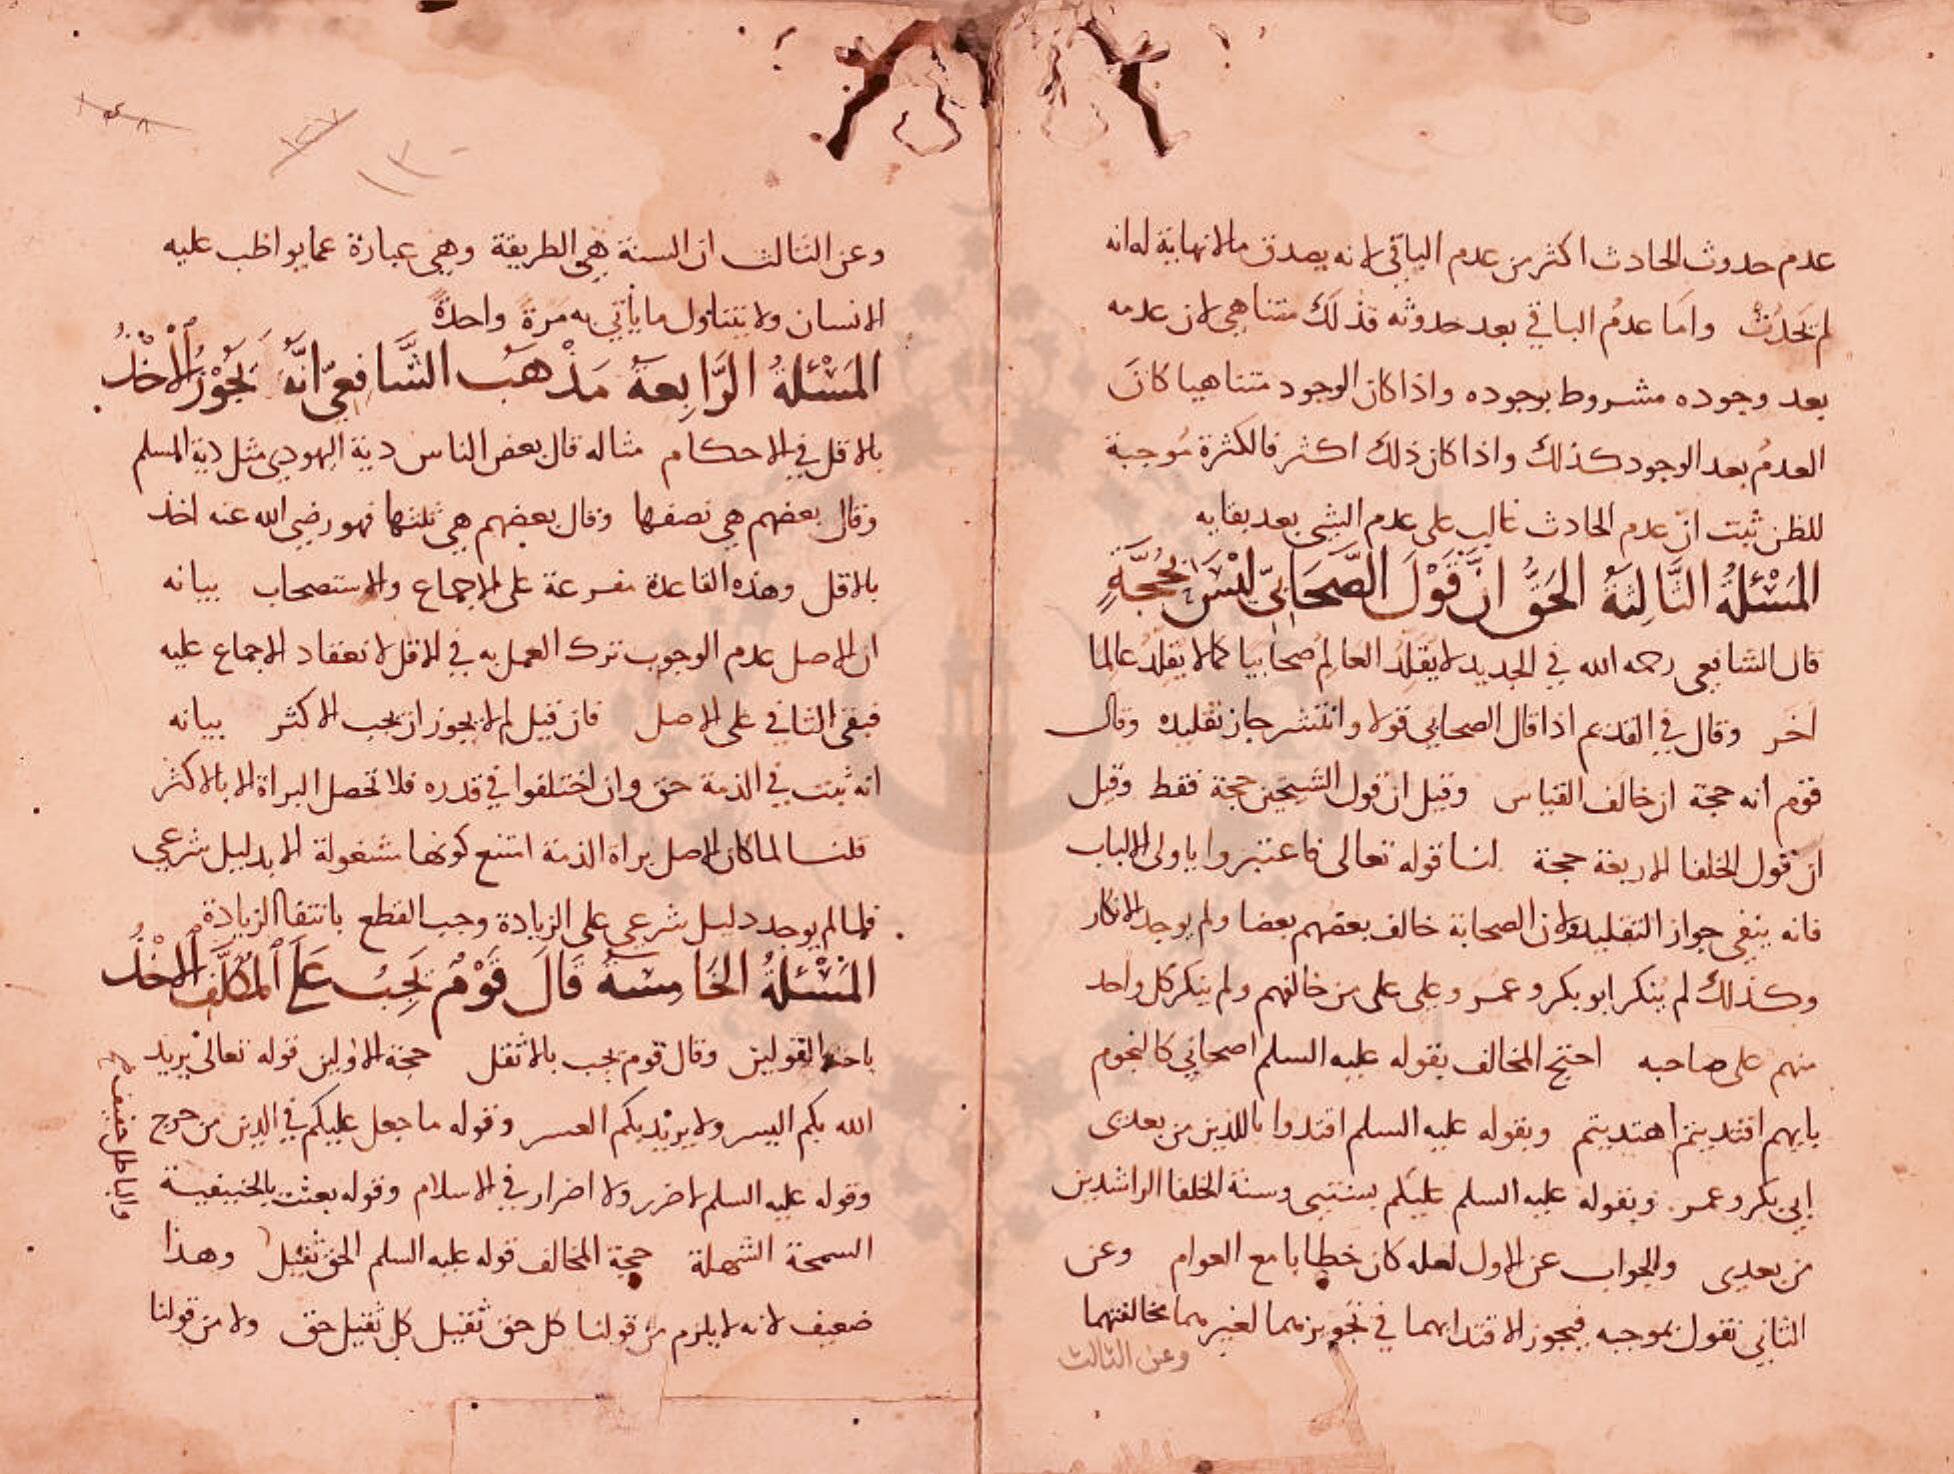 عدم حدوث الحادث اكثر من عدم الباقي لانه يصدق مالا نهاية له انه
لم يَحَدُث واما عدمُ الباقي بعد حدوثه فذلك متناهي لان عدمه
بعد وجوده مشروط بوجوده واذا كان الوجود متناهيا كان
العدمُ بعد الوجود كذلك واذا كان ذلك اكثر فالكثرة مُوجبة
للظن ثبت انّ عدم الحادث غالب على عدم الشي بعد بقايه
المَسْئلةُ الثَّالِثَةُ الحَقُّ انَّ قَوْلَ الصَّحَابيّ لَيْسَ بحُجَّةٍ
قال الشافعي رحمه الله في الجديد لا يُقلّد العالِمُ صحابيا كما لا يقلّد عالما
اخر وقال في القديم اذا قال الصحابي قولا وانتشر جاز تقليده وقال
قوم انه حجة ان خالف القياس وقيل ان قول الشيخين حجة فقط وقيل
ان قول الخلفا الاربعة حجة لنا قوله تعالى فاعتبروا ياولى الالباب
فانه ينفى جواز التقليد ولان الصحابة خالف بعضهم بعضا ولم يوجد الانكار
وكذلك لم يُنكر ابو بكر وعمر وعلى على من خالفهم ولم ينكر كل واحد
منهم على صاحبه احتج المخالف بقوله عليه السلم اصحابي كالنجوم
بايهم اقتديتم اهتديتم وبقوله عليه السلم اقتدوا باللذين من بعدى
ابي بكر وعمر وبقوله عليه السلم عليكم بسنتى وسنة الخلفا الراشدين
من بعدى والجواب عن الاول لعله كان خطابا مع العوام وعن
الثاني نقول بموجبه فيجوز الاقتدا بهما في تجويزهما لغيرهما مخالفتهما
وعن الثالث
وعن الثالث ان السنة هي الطريقة وهي عبارة عما يواظب عليه
الانسان ولا يتناول ما يأتي به مَرةً واحدةً
المَسْئلةُ الرَّابِعةُ مَذْهَبُ الشَّافِعِيّ انَّهُ يَجُوْزُ الأَخْذُ
بالاقل في الاحكام مثاله قال بعض الناس دية اليهودي مثل دية المسلم
وقال بعضهم هي نصفها وقال بعضهم هي ثلثها فهو رضي الله عنه اخذ
بالاقل وهذه القاعدة مفرعة على الاجماع والاستصحاب بيانه
ان الاصل عدم الوجوب ترك العمل به في الاقل لانعقاد الاجماع عليه
فبقى الثاني على الاصل فان قيل لم لا يجوز ان يجب الاكثر بيانه
انه ثبت في الذمة حق وان اختلفوا في قدره فلا تحصل البراة الا بالاكثر
قلنا لما كان الاصل براة الذمة امتنع كونها مشغولة الا بدليل شرعي
فلما لم يوجد دليل شرعي على الزيادة وجب القطع بانتفا الزيادة
المَسْئلةُ الخَامِسَةُ قَالَ قَوْمٌ يَجِبُ عَلَى المُكلَّفِ الأَخْذُ
باخف القولين وقال قوم يجب بالاثقل حجة الاولين قوله تعالى يريد
الله بكم اليسر ولا يريد بكم العسر وقوله ما جعل عليكم في الدين من حرج
وقوله عليه السلم لا ضرر ولا اضرار في الاسلام وقوله بعثت بالحنيفية
السمحة السهلة حجة المخالف قوله عليه السلم الحق ثقيل وهذا
ضعيف لانه لا يلزم من قولنا كل حق ثقيل كل ثقيل حق ولا من قولنا
والباطل خفيف صح
١٣٠